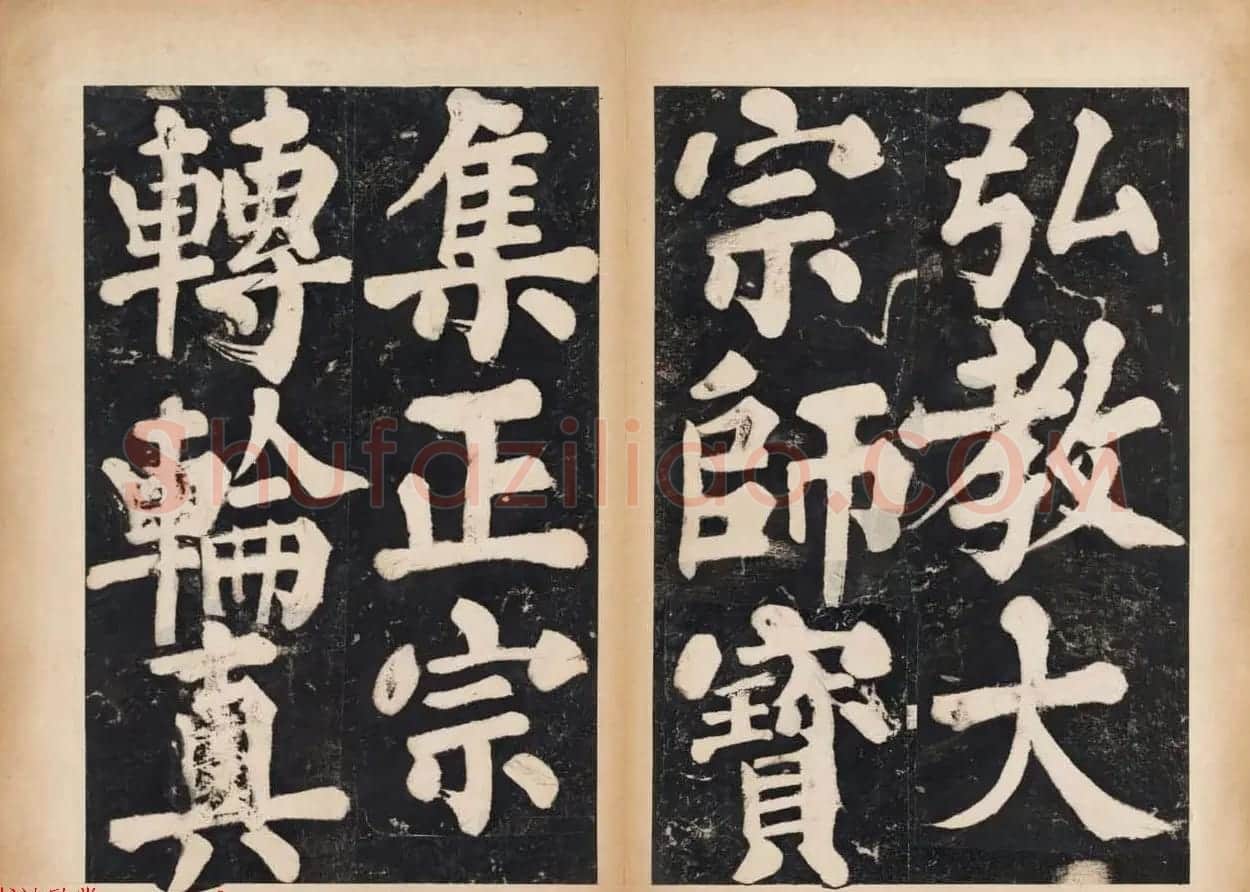 弘教大
宗師寶
集正宗
轉輪真
Shufaziliao.COM